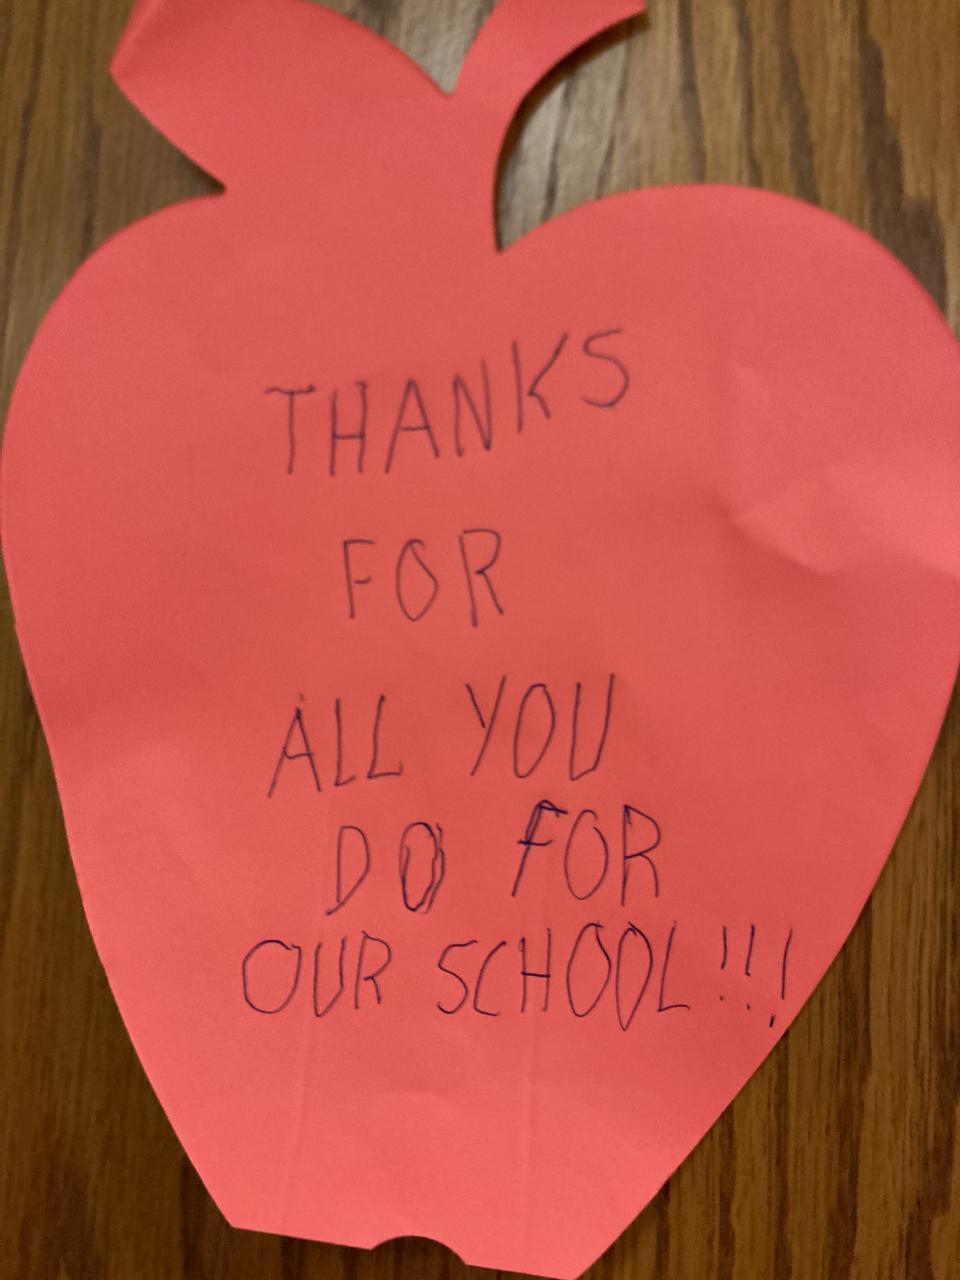 THANKS
FOR
ALL YOU
DO FOR
OUR SCHOOL!!!